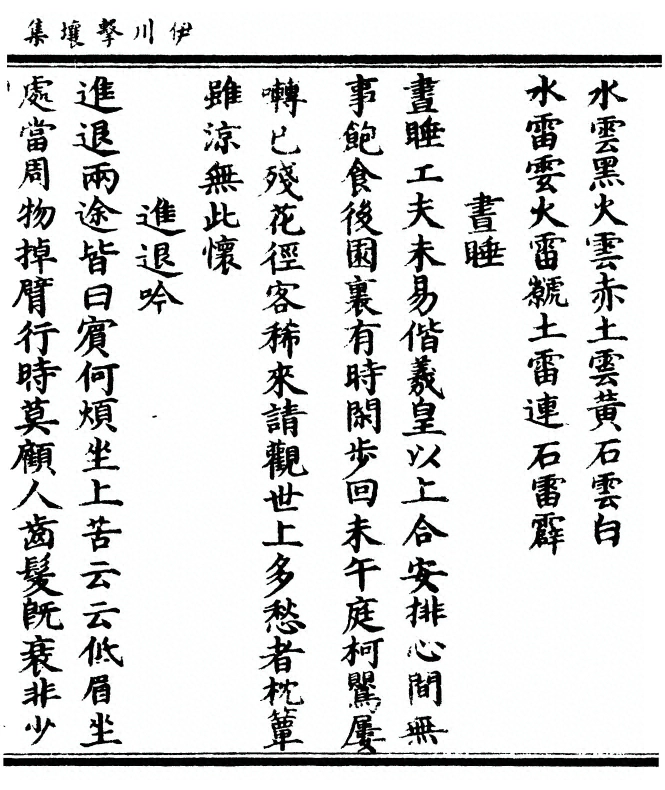 伊川擊壤集
水雲黑火雲赤土雲黃石雲白
水雷䨓火雷虩土雷連石雷霹
晝睡
晝睡工夫未易偕羲皇以上合安排心間無
事飽食後園裏有時閑步回未午庭柯鸎屢
囀已殘花徑客稀來請觀世上多愁者枕簟
雖涼無此懷
進退吟
進退兩途皆曰賓何煩坐上苦云云低眉坐
處當周物掉臂行時莫顧人齒髮既衰非少